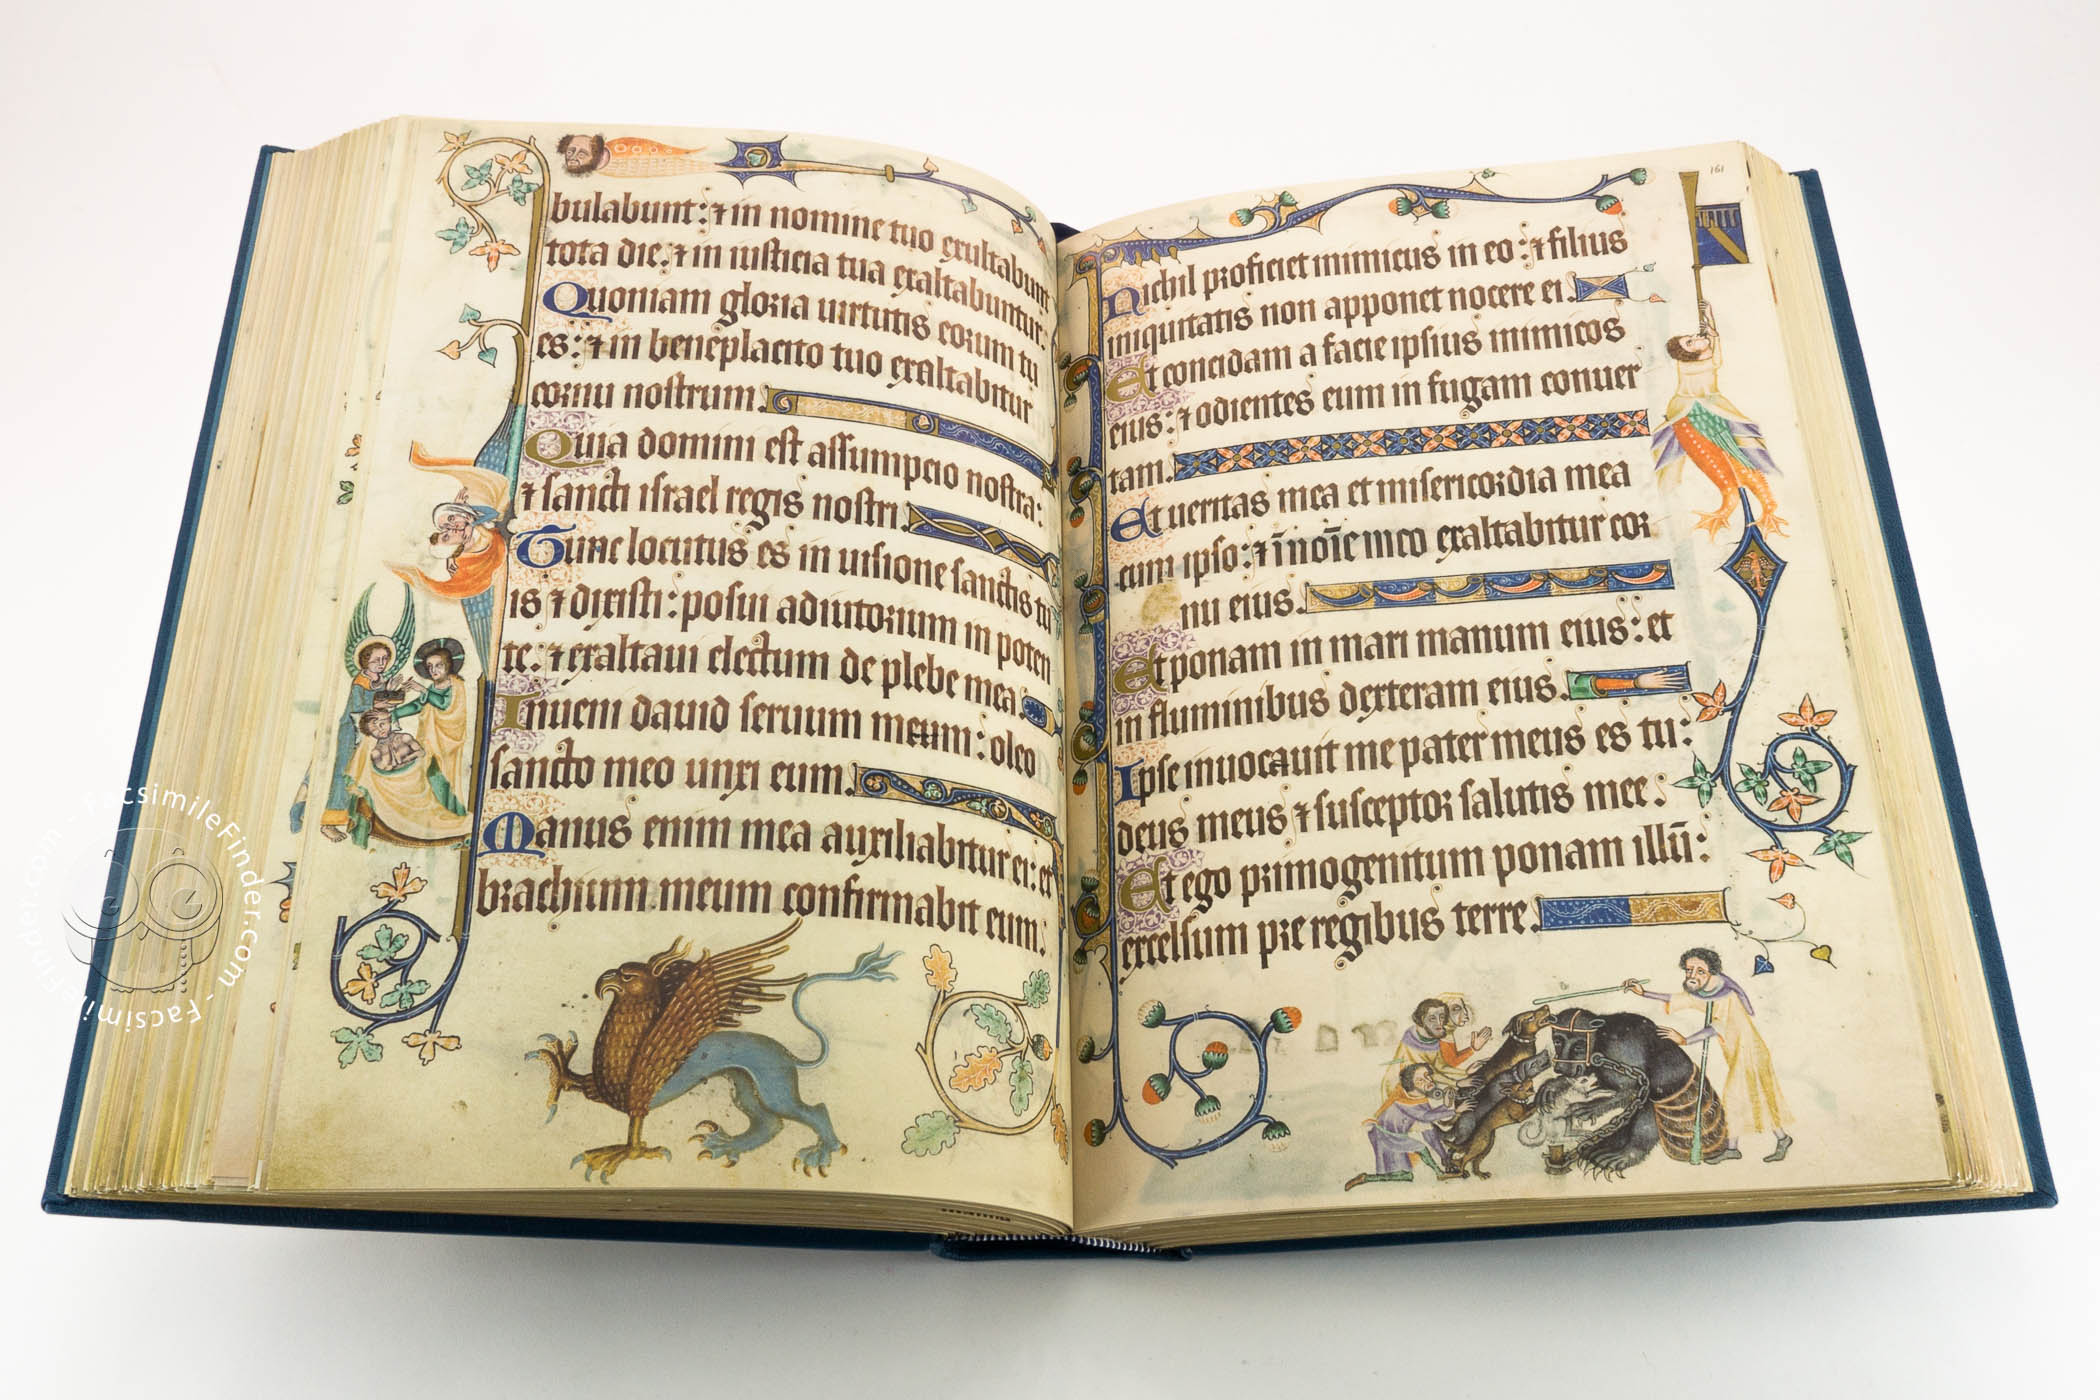 bulabunt: ⁊ in nomine tuo exultabunt
tota die. ⁊ in iusticia tua exaltabuntur.
Quoniam gloria uirtutis eorum tu
es: ⁊ in beneplacito tuo exaltabitur
cornu nostrum.
Quia domini est assumpcio nostra:
⁊ sancti israel regis nostri.
Tunc locutus es in uisione sanctis tu
is ⁊ dixisti: posui adiutorium in poten
te. ⁊ exaltaui electum de plebe mea.
Inueni dauid seruum meum: oleo
sancto meo unxi eum.
Manus enim mea auxiliabitur ei: et
brachium meum confirmabit eum:
161
Nichil proficiet inimicus in eo: ⁊ filius
iniquitatis non apponet nocere ei.
Et concidam a facie ipsius inimicos
eius: ⁊ odientes eum in fugam conuer
tam.
Et ueritas mea et misericordia mea
cum ipso: ⁊ ī nōie meo exaltabitur cor
nu eius.
Et ponam in mari manum eius: et
in fluminibus dexteram eius.
Ipse inuocauit me pater meus es tu:
deus meus ⁊ susceptor salutis mee:
Et ego primogenitum ponam illū:
excelsum pre regibus terre.
FacsimileFinder.com - FacsimileFinder.com -